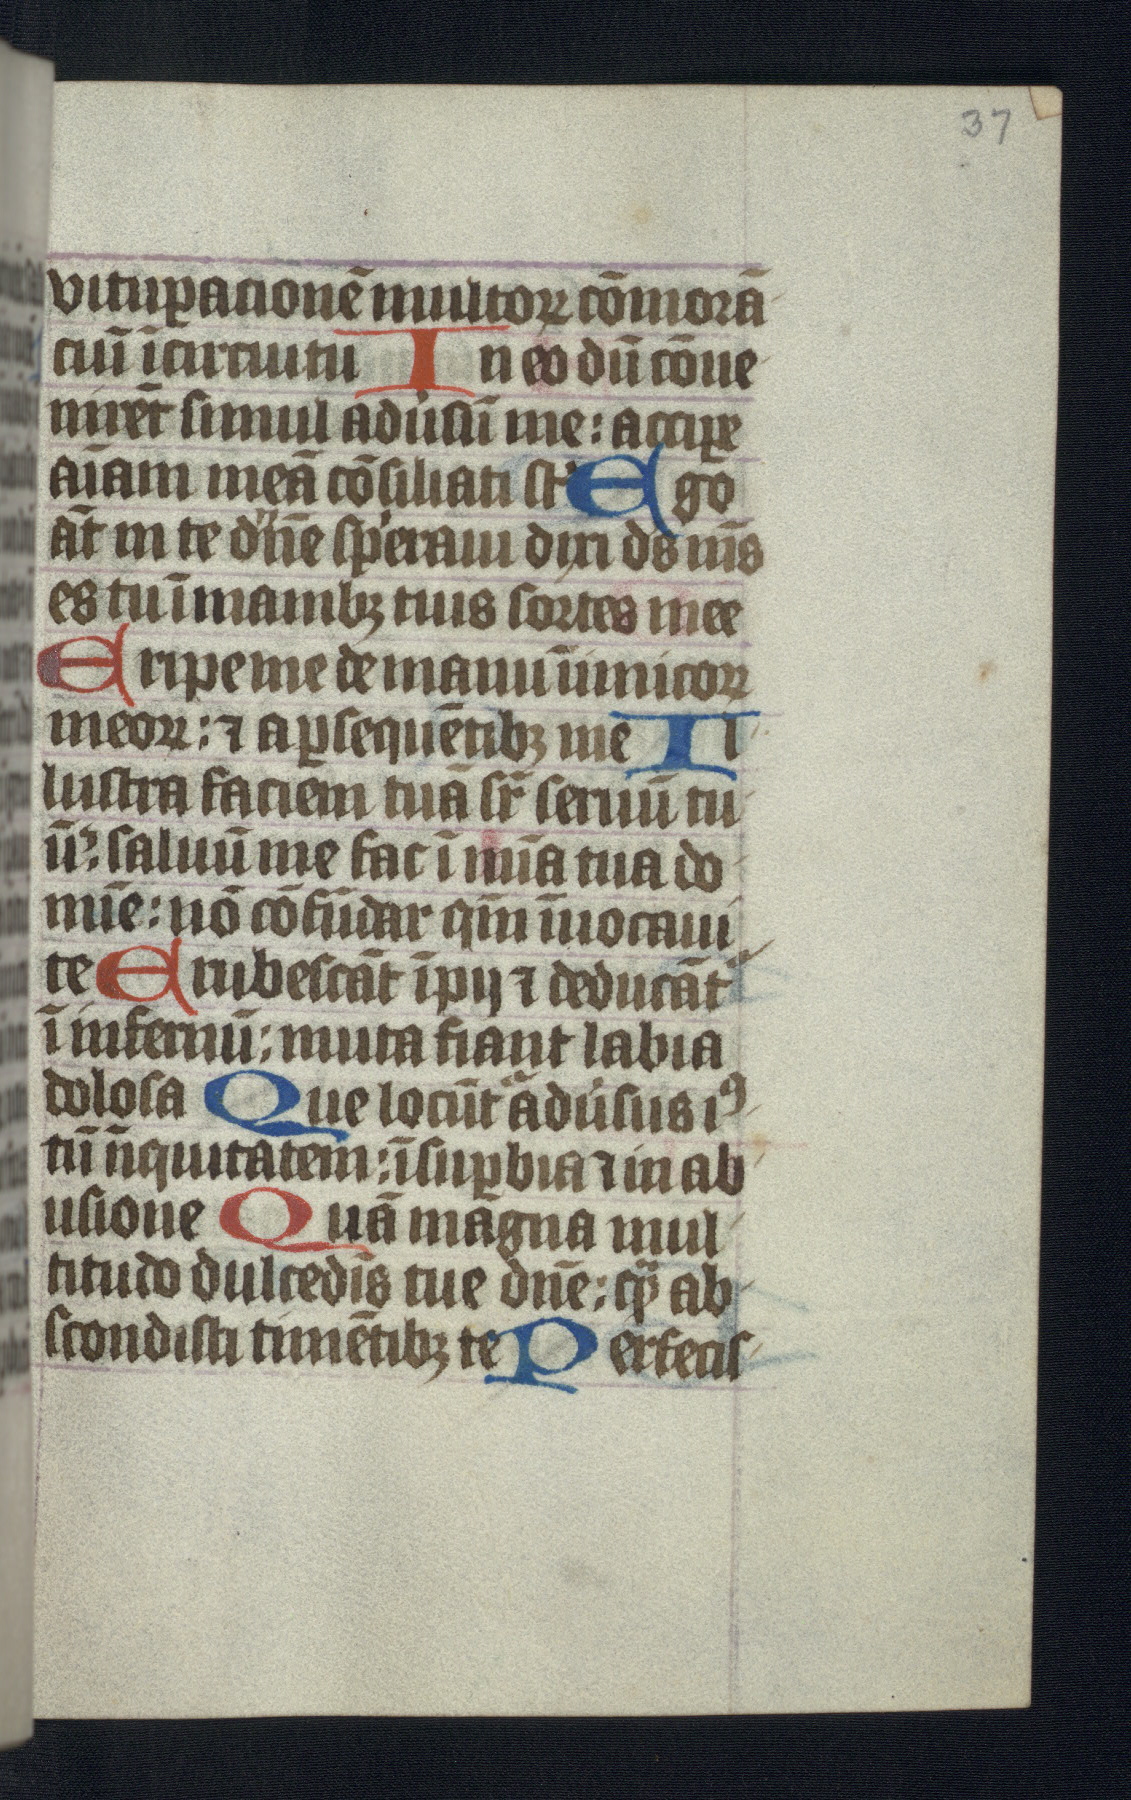 37
vitup̲acionē multoꝝ cōmorā
ciū ī circuitu In eo dū cōue
nirēt simul adūsū me: accip̲e
aīam meā cōsiliati st Ego
āt in te dn̄e speraui dixi ds m̄s
es tu ī manibꝫ tuis sortes mee
Eripe me de manu inimicoꝝ
meoꝝ: ⁊ a p̲sequētibꝫ me Il
lustra faciem tuā sr̄ seruū tu
ū: saluū me fac ī mīa tua do
mīe: nō cōfūdar qm̄ īuocaui
te Erubescāt īpij ⁊ deducāt
ī infernū: muta fiant labia
dolosa Que locūt adūsus iꝰ
tū īiquitatem: ī sup̲bia ⁊ in ab
usione Quā magna mul
titudo dulcedīs tue dn̄e: qͣ ab
scondisti timētibꝫ te Perfecis